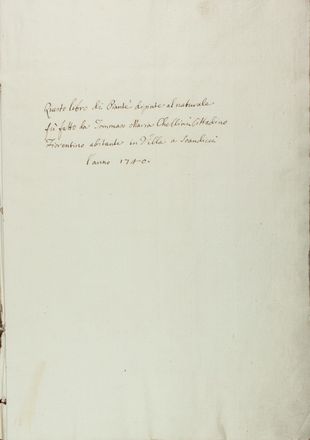 Questo libro di Piante dipinte al naturale
fù fatto da Tommaso Maria Chellini Cittadino
Fiorentino abitante in Villa a Scandicci
l'anno 1740.